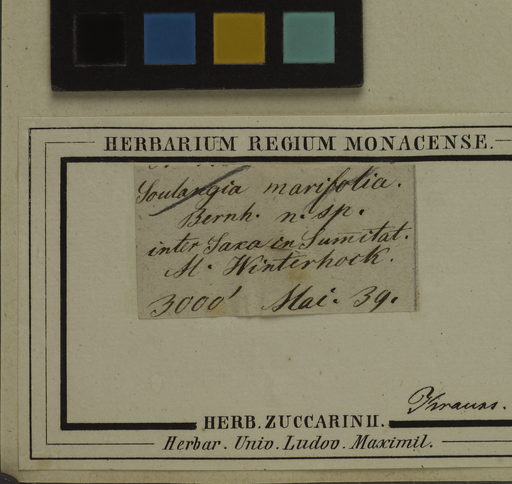 HERBARIUM REGIUM MONACENSE.
Soulangia marifolia.
Bernh. n. sp.
inter Saxa in Sumitat.
M. Winterhock.
3000' Mai. 39.
Krauss.
HERB. ZUCCARINII.
Herbar. Univ. Ludov. Maximil.